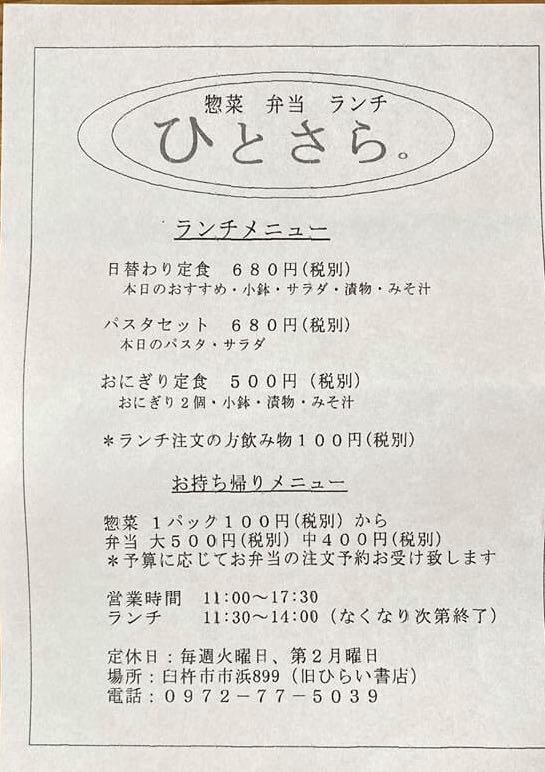 惣菜　弁当　ランチ
ひとさら。
ランチメニュー
日替わり定食　６８０円(税別)
本日のおすすめ・小鉢・サラダ・漬物・みそ汁
パスタセット　６８０円(税別)
本日のパスタ・サラダ
おにぎり定食　５００円（税別）
おにぎり２個・小鉢・漬物・みそ汁
＊ランチ注文の方飲み物１００円(税別)
お持ち帰りメニュー
惣菜 １パック１００円(税別) から
弁当 大５００円(税別) 中４００円(税別)
＊予算に応じてお弁当の注文予約お受け致します
営業時間　11:00～17:30
ランチ　　11:30～14:00（なくなり次第終了）
定休日：毎週火曜日、第２月曜日
場所：臼杵市市浜899（旧ひらい書店）
電話：０９７２－７７－５０３９